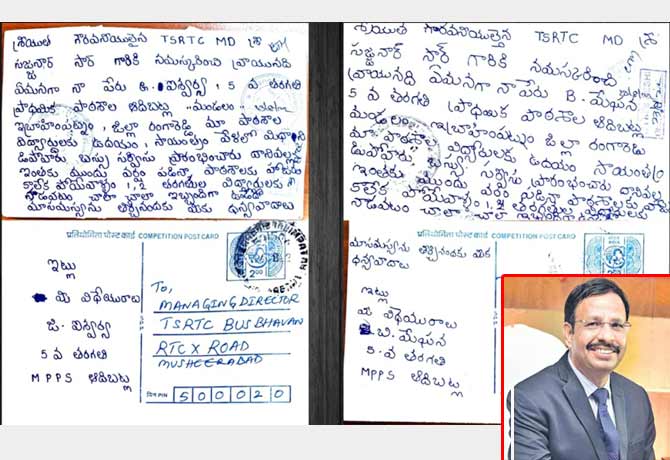 శ్రీయుత గౌరవనీయులైన TSRTC MD శ్రీ
సజ్జనార్ సార్ గారికి నమస్కరించి వ్రాయునది
ఏమనగా నా పేరు జి. ఐశ్వర్య, 5 వ తరగతి
ప్రాథమిక పాఠశాల ఆదిబట్ల మండలం
ఇబ్రాహింపట్నం, జిల్లా రంగారెడ్డి మా పాఠశాల
విద్యార్థులకు ఉదయం, సాయంత్రం వేళలో మెహి
డిపోవారు బస్సు సర్వీసు ప్రారంభించారు దానివల్ల
ఇంతకు ముందు వర్షం పడినా పాఠశాలకు
కాలేక పోయేవాళ్ళం 1,2 తరగతుల విద్యార్థులకు
నడవటం చాలా చాలా ఇబ్బందిగా ఉండేది
మా సమస్యను తీర్చినందుకు మీకు ధన్యవాదాలు
प्रतियोगिता पोस्ट कार्ड COMPETITION POST CARD
2.00
ఇట్లు
మీ విధేయురాలు
జి. ఐశ్వర్య
5 వ తరగతి
MPPS ఆదిబట్ల
To,
MANAGING DIRECTOR
TSRTC BUS BHAVAN
RTC X ROAD
MUSHEERABAD
पिन PIN 500020
శ్రీయుత గౌరవనీయులైన TSRTC MD శ్రీ
సజ్జనార్ సార్ గారికి నమస్కరించి
వ్రాయునది ఏమనగా నా పేరు B. మేఘన
5 వ తరగతి ప్రాథమిక పాఠశాల ఆదిబట్ల
మండలం, ఇబ్రాహింపట్నం జిల్లా రంగారెడ్డి
మా పాఠశాల విద్యార్థులకు ఉదయం సాయంత్రం
డిపోవారు, బస్సు సర్వీసు ప్రారంభించారు దానివల్ల
ఇంతకు ముందు వర్షం పడినా పాఠశాలకు
కాలేక పోయేవాళ్ళం 1,2 తరగతుల విద్యార్థులకు
నాడవటం చాలా చాలా ఇబ్బందిగా
प्रतियोगिता पोस्ट कार्ड COMPETITION POST CARD
మా సమస్యను తీర్చినందుకు మీకు
ధన్యవాదాలు
ఇట్లు
మీ విధేయురాలు
బి. మేఘన
5 వ తరగతి
MPPS ఆదిబట్ల